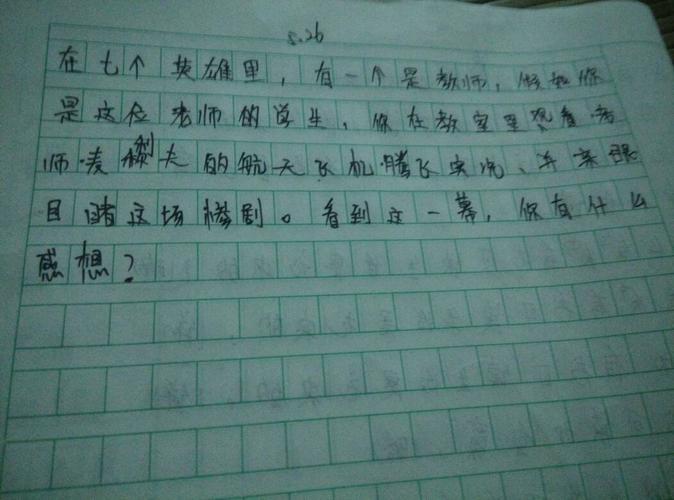 5.26
在七个英雄里，有一个是教师，假如你
是这位老师的学生，你在教室里观看老
师·麦利夫的航天飞机腾飞实况、并亲眼
目睹这场惨剧。看到这一幕，你有什么
感想？